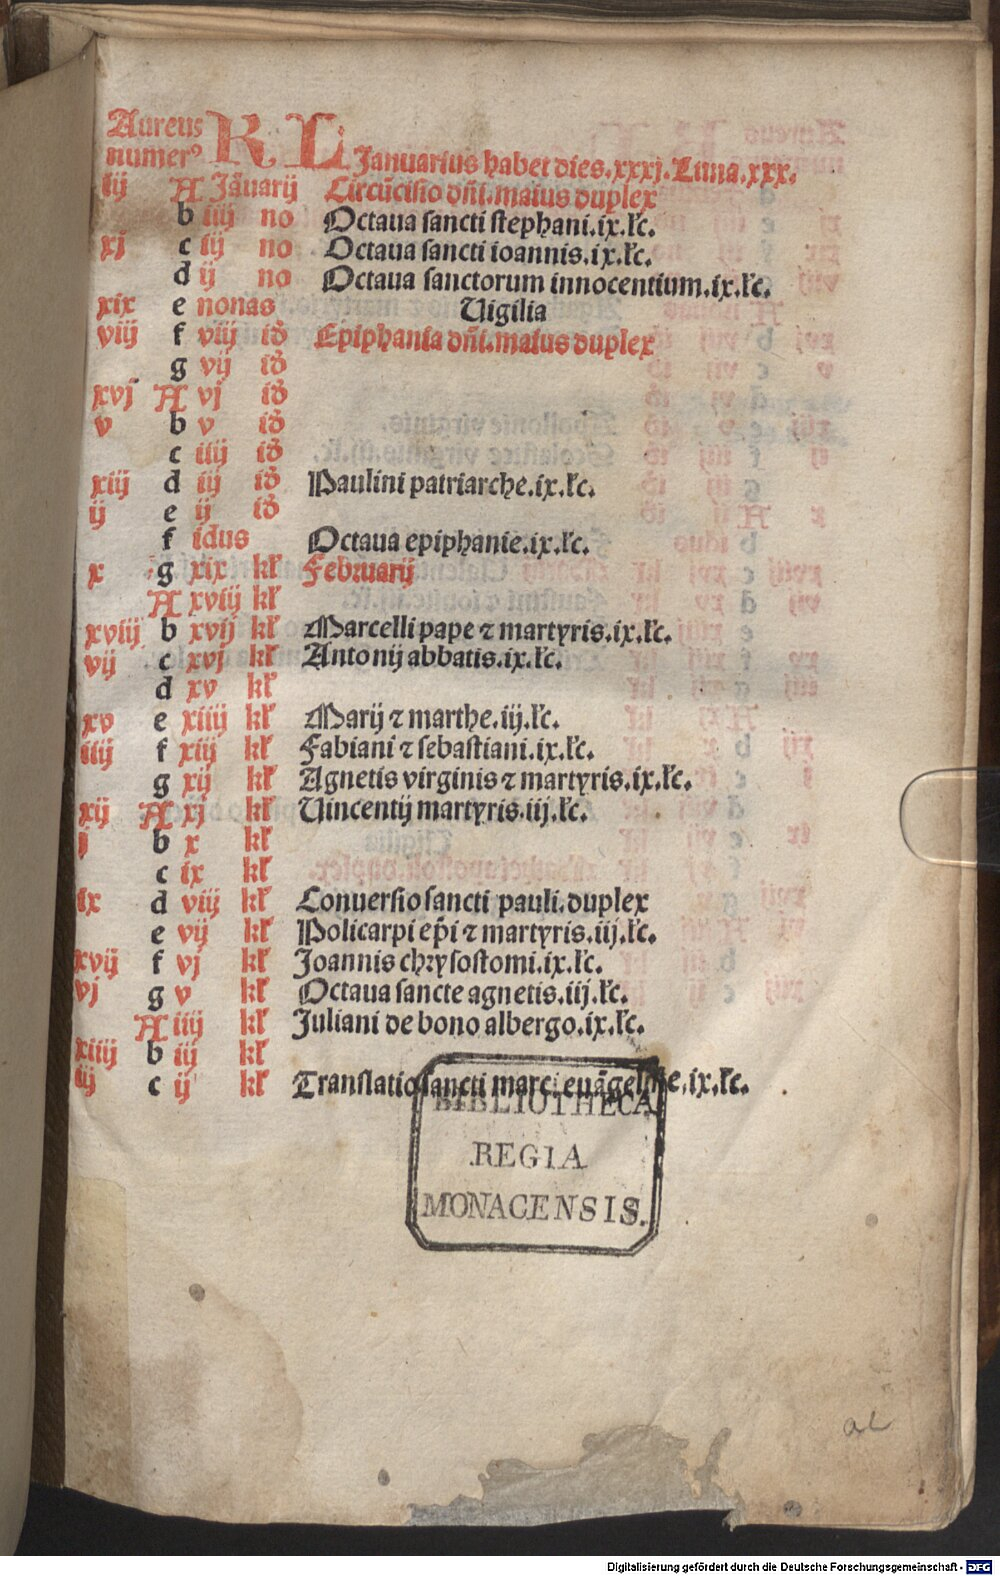 Aureus KL
numerꝰ Januarius habet dies.xxxj.Luna.xxx.
iij A Jãuarij Circũcisio dñi.maius duplex
b iiij no Octaua sancti stephani.ix.łc.
xj c iij no Octaua sancti ioannis.ix.łc.
d ij no Octaua sanctorum innocentium.ix.łc.
xix e nonas Uigilia
viij f viij id̄ Epiphania dñi.maius duplex
g vij id̄
xvj A vj id̄
v b v id̄
c iiij id̄
xiij d iij id̄ Paulini patriarche.ix.łc.
ij e ij id̄
f idus Octaua epiphanie.ix.łc.
x g xix kł Februarij
A xviij kł
xviij b xvij kł Marcelli pape ⁊ martyris.ix.łc.
vij c xvj kł Antonij abbatis.ix.łc.
d xv kł
xv e xiiij kł Marij ⁊ marthe.iij.łc.
iiij f xiij kł Fabiani ⁊ sebastiani.ix.łc.
g xij kł Agnetis virginis ⁊ martyris.ix.łc.
xij A xj kł Uincentij martyris.iij.łc.
j b x kł
c ix kł
ix d viij kł Conuersio sancti pauli.duplex
e vij kł Policarpi ep̃i ⁊ martyris.iij.łc.
xvij f vj kł Joannis chrysostomi.ix.łc.
vj g v kł Octaua sancte agnetis.iij.łc.
A iiij kł Juliani de bono albergo.ix.łc.
xiiij b iij kł
iij c ij kł Translatio sancti marci euãgeliste.ix.łc.
BIBLIOTHECA
REGIA
MONACENSIS.
Digitalisierung gefördert durch die Deutsche Forschungsgemeinschaft - DFG